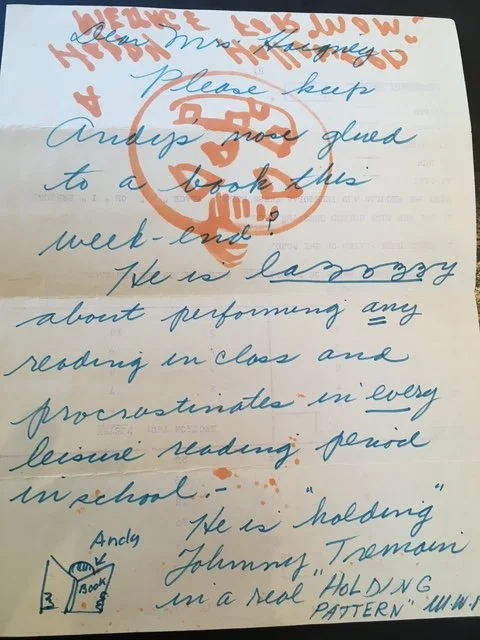 Dear Mrs Haigney -
Please keep
Andy's nose glued
to a book this
week-end?
He is lazzzzy
about performing any
reading in class and
procrastinates in every
leisure reading period
in school. -
He is "holding"
Johnny Tremain
in a real "HOLDING
PATTERN"
Andy
Book